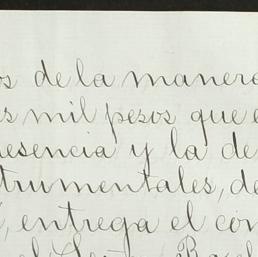 os de la manera
s mil pesos que e
resencia y la de
trumentales, de
, entrega el con
el Señor Ra